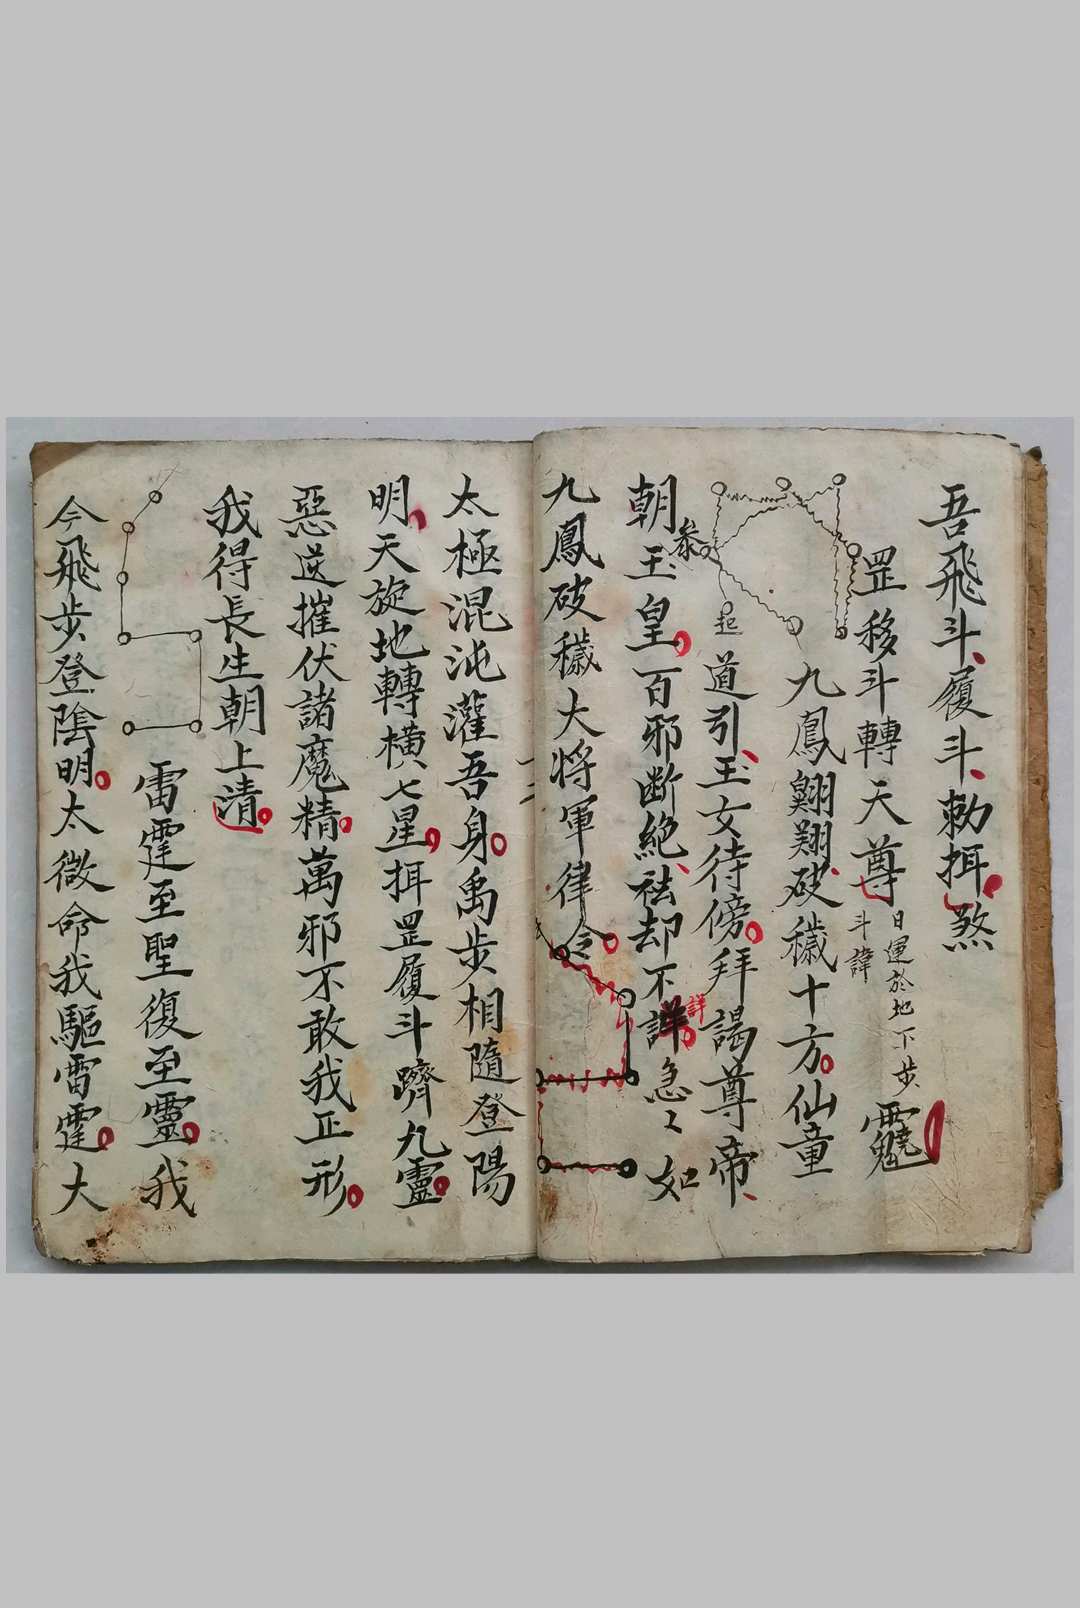 吾飛斗履斗勅挕煞
罡移斗轉天尊
日運於地下步
斗諱
九鳳翱翔破穢十方仙童
起
道引玉女待傍拜謁尊帝
朝玉皇百邪断絶祛却不詳急々如
詳
九鳳破穢大将軍律令
太極混沌灌吾身禹步相隨登陽
明天旋地轉橫七星挕罡履斗躋九靈
惡逆摧伏諸魔精萬邪不敢我正形
我得長生朝上清
雷霆至聖復至靈我
今飛步登陰明太微命我驅雷霆大